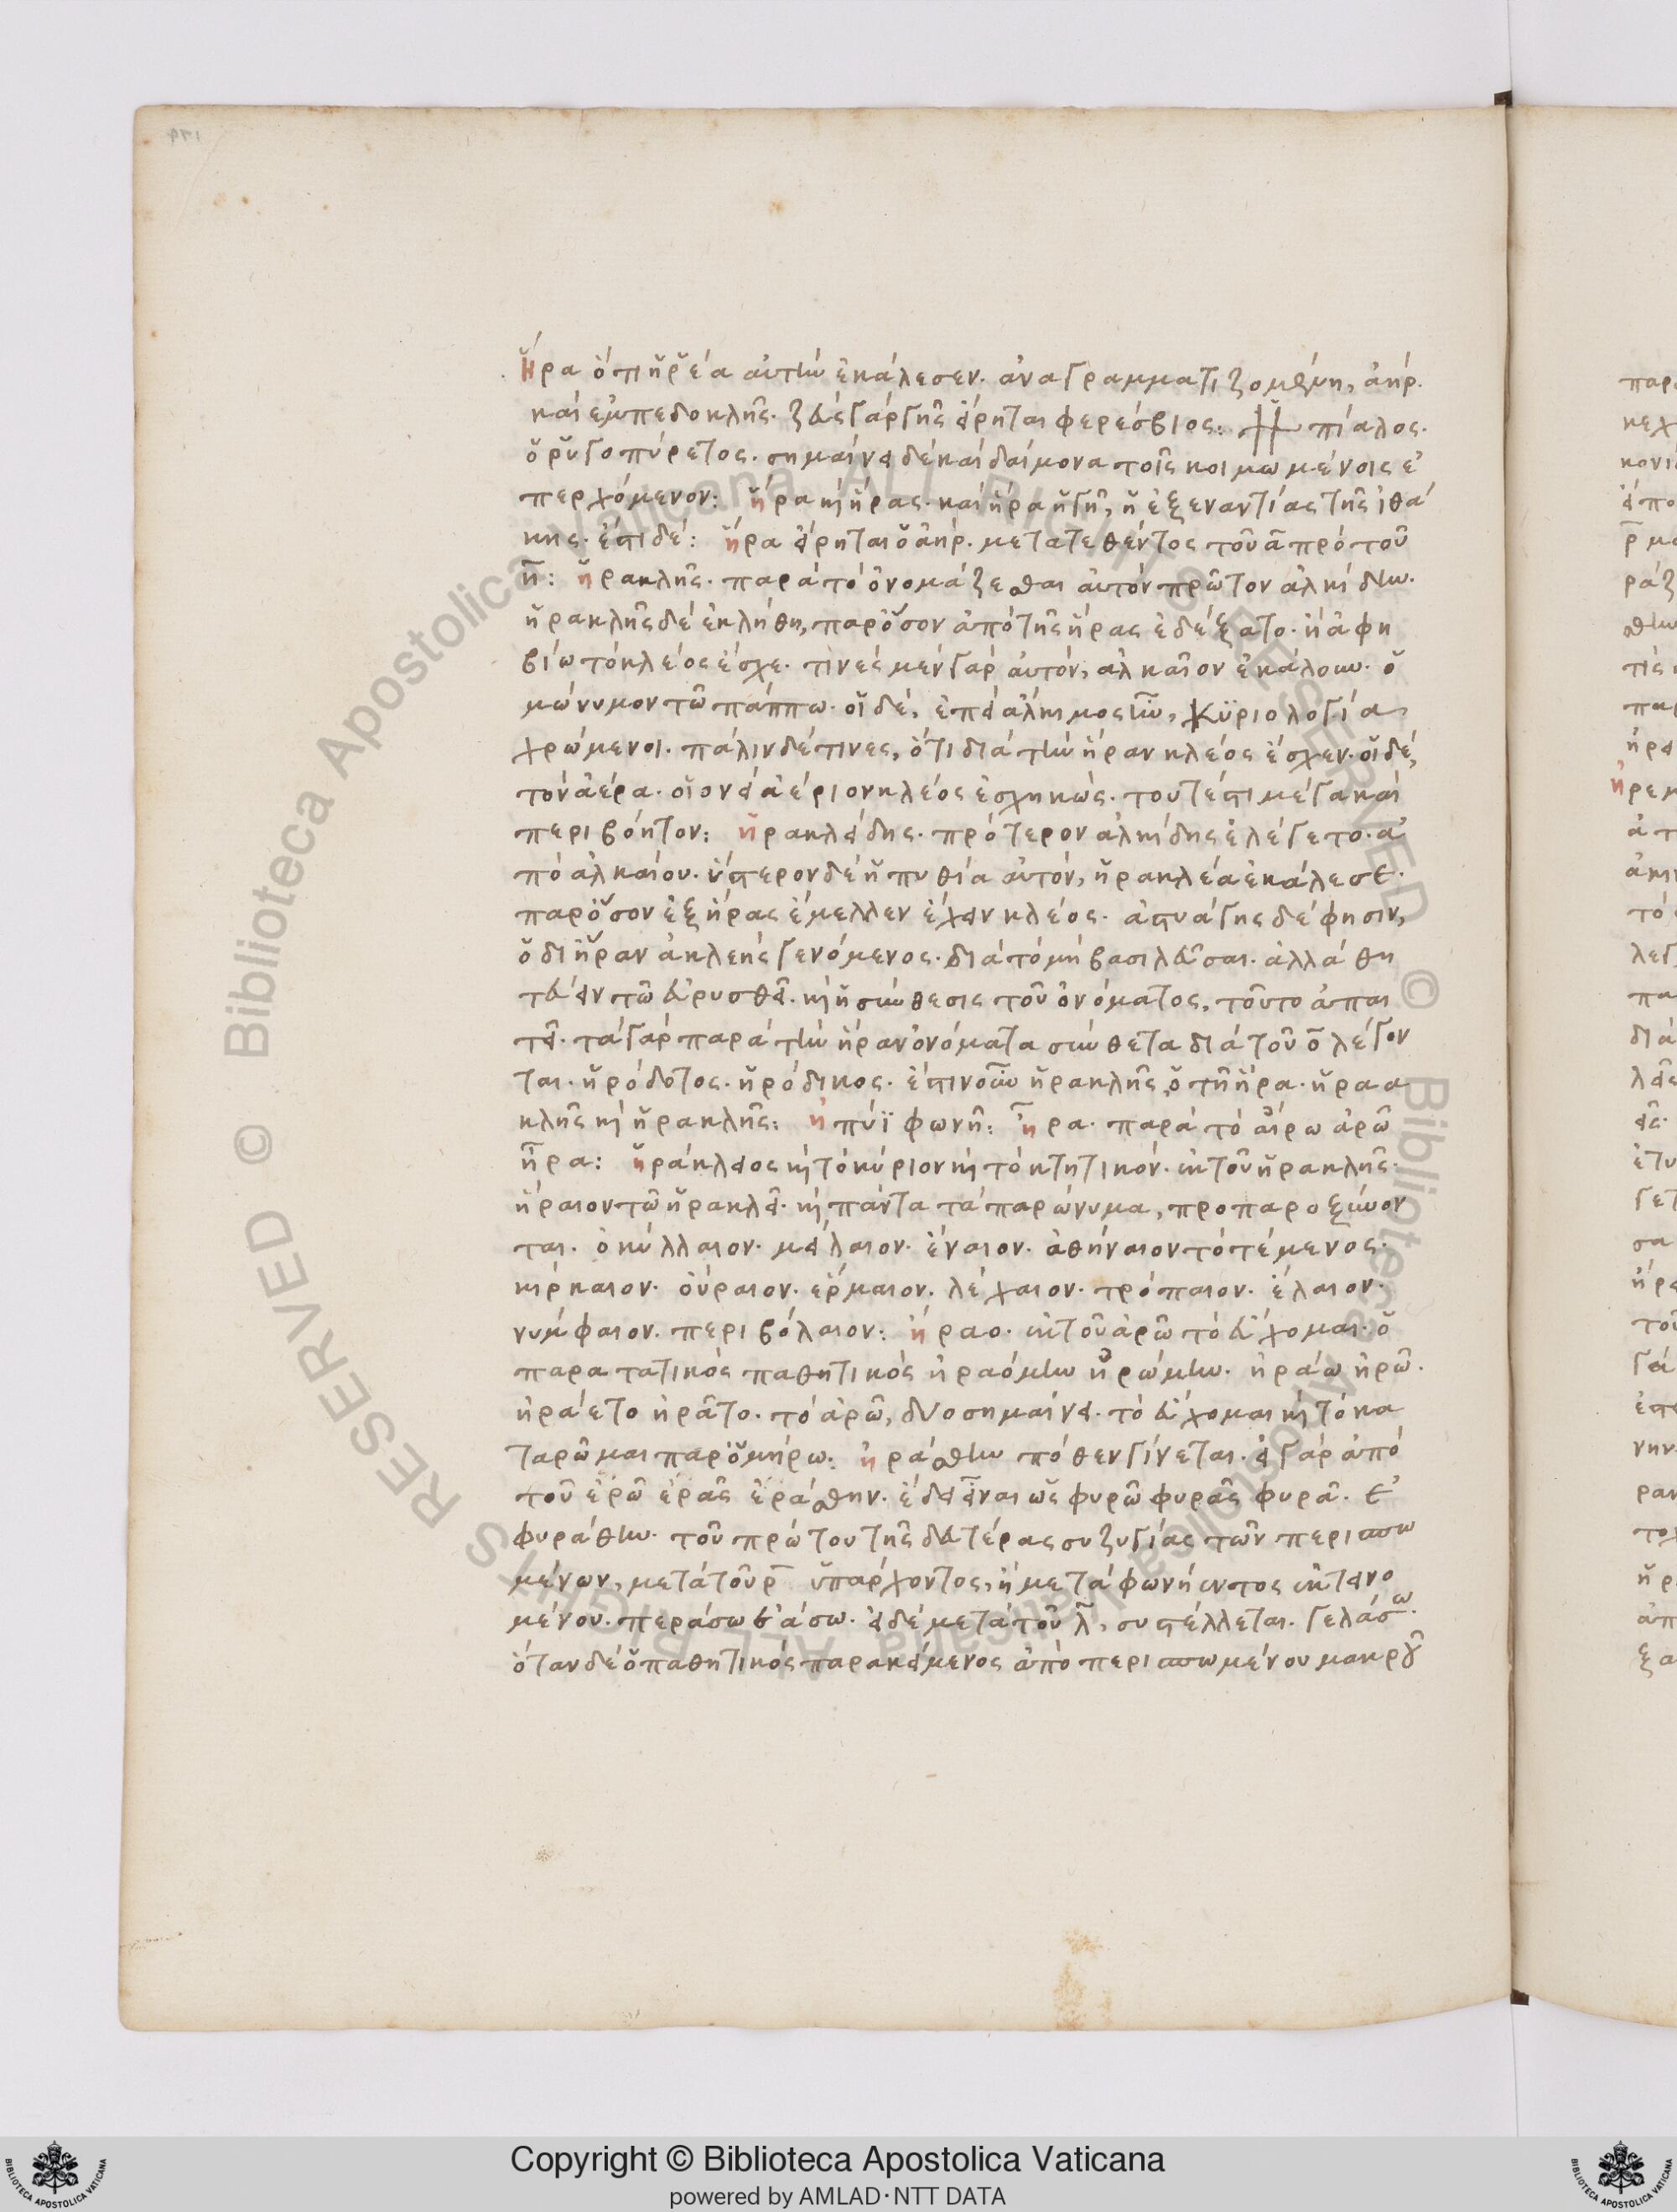 Ἥρα ὅτι ἡ ῥέα αὐτὴν ἐκάλεσεν. ἀναγραμματιζομένη, ἀήρ.
καὶ ἐμπεδοκλῆς. ζεὺς γὰρ γῆς εἴρηται φερέσβιος: Ἠπίαλος.
ὁ ῥυγοπύρετος. σημαίνει δὲ καὶ δαίμονα τοῖς κοιμωμένοις ἐ
περχόμενον: ἥρα καὶ ἥρας. καὶ ἥρα ἡ γῆ, ἡ ἐξεναντίας τῆς ἰθά
κης. ἔστι δέ: ἥρα εἴρηται ὁ ἀήρ. μετατεθέντος τοῦ α πρὸ τοῦ
η: ἡρακλῆς. παρὰ τὸ ὀνομάζεσθαι αὐτὸν πρῶτον ἀλκίδην.
ἡρακλῆς δὲ ἐκλήθη, παρόσον ἀπὸ τῆς ἥρας ἐδέξατο. ἢ ἀφη
βίω τὸ κλέος ἔσχε. τινὲς μὲν γὰρ αὐτόν, ἀλκαῖον ἐκάλουν. ὁ
μώνυμον τῶ πάππω. οἱ δέ, ἐπεὶ ἄλκιμος ἦν, κϋριολογία
χρώμενοι. πάλιν δέ τινες, ὅτι διὰ τὴν ἥραν κλέος ἔσχεν. οἱ δέ,
τὸν ἀέρα. οἱονεὶ ἀέριον κλέος ἐσχηκώς. τουτέστι μέγα καὶ
περιβόητον: ἡρακλείδης. πρότερον ἀλκείδης ἐλέγετο. ἀ
πὸ ἀλκαίου. ὕστερον δὲ ἡ πυθία αὐτόν, ἡρακλέα ἐκάλεσε.
παρόσον ἐξ ἥρας ἔμελλεν ἔχειν κλέος. ἀστυάγης δέ φησιν,
ὁ δι' ἥραν ἀκλεὴς γενόμενος. διὰ τὸ μὴ βασιλεῦσαι. ἀλλὰ θη
τεύειν τῶ εὐρυσθεῖ. καὶ ἡ σύνθεσις τοῦ ὀνόματος, τοῦτο ἀπαι
τεῖ. τὰ γὰρ παρὰ τὴν ἥραν ὀνόματα σύνθετα διὰ τοῦ ο λέγον
ται. ἡρόδοτος. ἡρόδικος. ἔστιν οὖν ἡρακλῆς, ὁ τῆ ἥρα. ἡραα
κλῆς καὶ ἡρακλῆς: ἠπύϊ φωνῆ: ἦρα. παρὰ τὸ αἴρω ἀρῶ
ἦρα: ἡράκλειος καὶ τὸ κύριον καὶ τὸ κτητικόν. ἐκ τοῦ ἡρακλῆς.
ἡραιον τῶ ἡρακλεῖ. καὶ πάντα τὰ παρώνυμα, προπαροξύνον
ται. ὁκύλλαιον. μείλαιον. ἔναιον. ἀθήναιον τὸ τέμενος.
κίρκαιον. οὔραιον. ἕρμαιον. λέχαιον. τρόπαιον. ἔλαιον.
νυμφαιον. περιβόλαιον: ἠραο. ἐκ τοῦ ἀρῶ τὸ εὔχομαι. ὁ
παρατατικὸς παθητικὸς ἠραόμην ἠρώμην. ἠράω ἠρῶ.
ἠράετο ἠρᾶτο. τὸ ἀρῶ, δύο σημαίνει. τὸ εὔχομαι καὶ τὸ κα
ταρῶμαι παρ' ὁμήρω: ἠράσθην πόθεν γίνεται. εἰ γὰρ ἀπὸ
τοῦ ἐρῶ ἐρᾶς ἐράσθην. ἔδει εἶναι ὡς φυρῶ φυρᾶς φυρᾶ. ἐ
φυράθην. τοῦ πρώτου τῆς δευτέρας συζυγίας τῶν περισπω
μένων, μετὰ τοῦ ρ ὑπάρχοντος, ἢ μετὰ φωνήεντος ἐκτεινο
μένου. περάσω ἐάσω. εἰ δὲ μετὰ τοῦ λ, συστέλλεται. γελάσω.
ὅταν δὲ ὁ παθητικὸς παρακείμενος ἀπὸ περισπωμένου μακροῦ